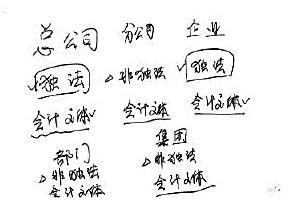 总公司 分公司 企业
独法 非独法 独法
会计主体 会计主体 会计主体
部门 集团
非独法 非独法
会计主体 会计主体